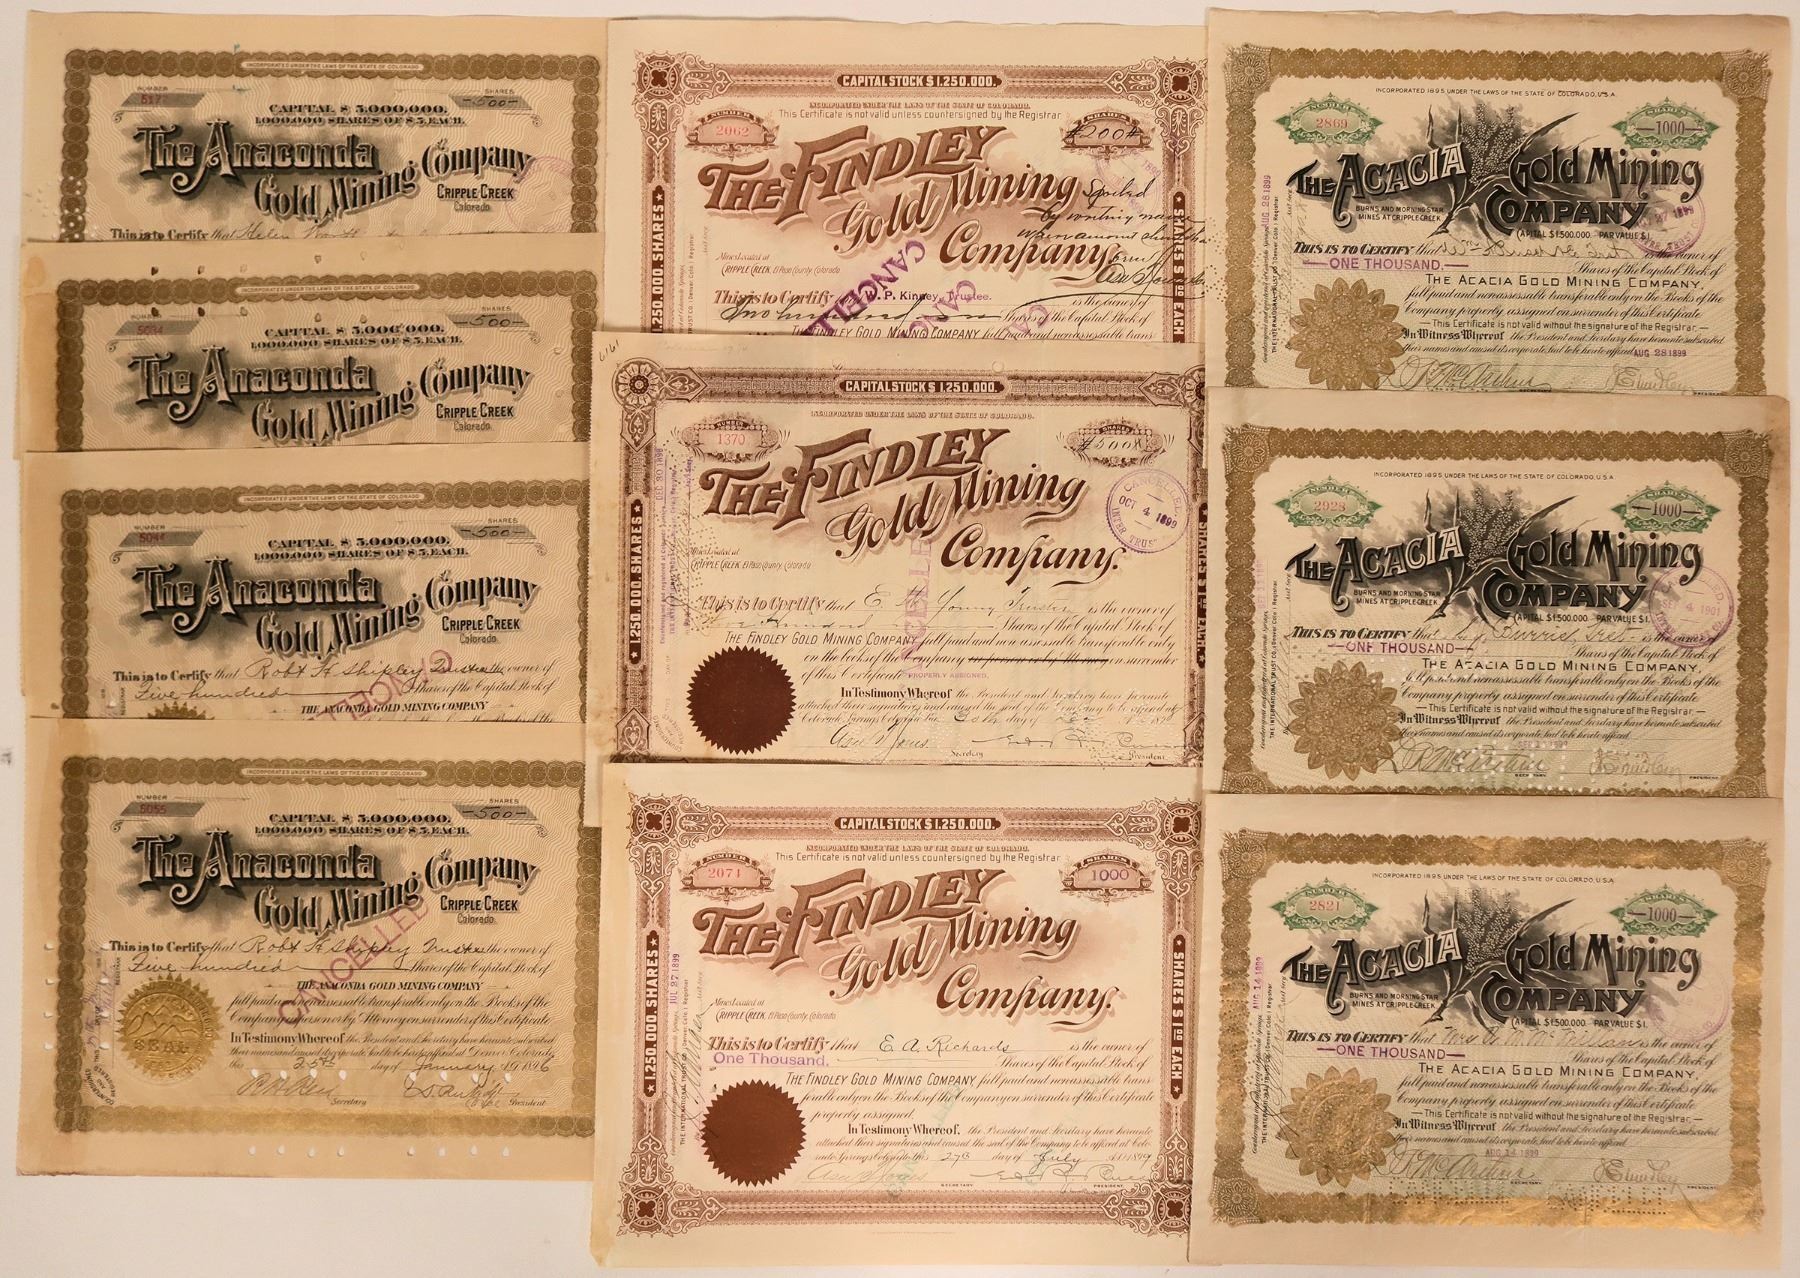 INCORPORATED UNDER THE LAWS OF THE STATE OF COLORADO
NUMBER
517
SHARES
-500-
CAPITAL $ 5,000,000.
1,000,000 SHARES OF $5. EACH.
The Anaconda
Gold Mining Company
CRIPPLE CREEK
Colorado.
This is to Certify that Helen
-500-
CAPITAL $ 5,000,000.
1,000,000 SHARES OF $5. EACH.
The Anaconda
Gold Mining Company
CRIPPLE CREEK
Colorado.
INCORPORATED UNDER THE LAWS OF THE STATE OF COLORADO
NUMBER
5044
SHARES
-500-
CAPITAL $ 5,000,000.
1,000,000 SHARES OF $5. EACH.
The Anaconda
Gold Mining Company
CRIPPLE CREEK
Colorado.
This is to Certify that Robt H Shipley Trustee is the owner of
Five hundred Shares of the Capital Stock of
THE ANACONDA GOLD MINING COMPANY
CANCELLED
INCORPORATED UNDER THE LAWS OF THE STATE OF COLORADO
NUMBER
5055
SHARES
-500-
CAPITAL $ 5,000,000.
1,000,000 SHARES OF $5. EACH.
The Anaconda
Gold Mining Company
CRIPPLE CREEK
Colorado.
This is to Certify that Robt H Shipley Trustee is the owner of
Five hundred Shares of the Capital Stock of
THE ANACONDA GOLD MINING COMPANY
full paid and non assessable transferable only on the Books of the
Company in person or by Attorney on surrender of this Certificate
In Testimony Whereof the President and Secretary have hereunto subscribed
their names and caused its corporate seal to be hereto affixed at Denver Colorado
this 25th day of January AD 1896
Secretary
President
CANCELLED
SEAL
CAPITAL STOCK $ 1.250.000.
INCORPORATED UNDER THE LAWS OF THE STATE OF COLORADO.
This Certificate is not valid unless countersigned by the Registrar.
NUMBER
2062
SHARES
#200#
THE FINDLEY
Gold Mining
Company.
Spoiled
by writing name
when amount should
Mines Located at
CRIPPLE CREEK, El Paso County, Colorado
1.250.000 SHARES
SHARES $1.00 EACH
This is to Certify W. P. Kinney, Trustee. is the owner of
Two hundred Shares of the Capital Stock of
THE FINDLEY GOLD MINING COMPANY full paid and nonassessable trans-
CANCELLED
6161
CAPITAL STOCK $ 1.250.000.
INCORPORATED UNDER THE LAWS OF THE STATE OF COLORADO.
NUMBER
1370
SHARES
#500#
THE FINDLEY
Gold Mining
Company.
CANCELLED
OCT 4 1899
INTER
TRUST
DEC 30 1898
Mines Located at
CRIPPLE CREEK, El Paso County, Colorado
1.250.000. SHARES
SHARES $1.00 EACH.
This is to Certify that E Young Trustee is the owner of
Five hundred Shares of the Capital Stock of
THE FINDLEY GOLD MINING COMPANY full paid and non assessable transferable only
on the books of the Company in person or by Attorney on surrender
of this Certificate PROPERLY ASSIGNED.
In Testimony Whereof the President and Secretary have hereunto
attached their signatures and caused the seal of the Company to be affixed at
Colorado Springs Colorado this 30th day of Dec
Asa T Jones.
Secretary
President
CANCELLED
CAPITAL STOCK $ 1.250.000.
INCORPORATED UNDER THE LAWS OF THE STATE OF COLORADO.
This Certificate is not valid unless countersigned by the Registrar.
NUMBER
2071
SHARES
1000
THE FINDLEY
Gold Mining
Company.
JUL 27 1899
Mines Located at
CRIPPLE CREEK, El Paso County, Colorado
1.250.000. SHARES
SHARES $1.00 EACH
This is to Certify that E. A. Richards is the owner of
One Thousand. Shares of the Capital Stock of
THE FINDLEY GOLD MINING COMPANY full paid and nonassessable trans-
ferable only on the Books of the Company on surrender of this Certificate
properly assigned.
In Testimony Whereof, the President and Secretary have hereunto
attached their signatures and caused the seal of the Company to be affixed at Colo-
rado Springs Colorado this 27th day of July A.D. 1899
Asa T Jones
SECRETARY.
PRESIDENT.
INCORPORATED 1895 UNDER THE LAWS OF THE STATE OF COLORADO, U.S.A.
NUMBER
2869
SHARES
-1000-
THE ACACIA Gold Mining
COMPANY.
BURNS AND MORNING STAR
MINES AT CRIPPLE CREEK
CAPITAL $1.500.000. PAR VALUE $1.
AUG 28 1899
THIS IS TO CERTIFY that is the owner of
ONE THOUSAND. Shares of the Capital Stock of
THE ACACIA GOLD MINING COMPANY,
full paid and nonassessable transferable only on the Books of the
Company properly assigned on surrender of this Certificate
This Certificate is not valid without the signature of the Registrar.
In Witness Whereof the President and Secretary have hereunto subscribed
their names and caused its corporate seal to be hereto affixed AUG 28 1899
INCORPORATED 1895 UNDER THE LAWS OF THE STATE OF COLORADO, U.S.A.
NUMBER
2928
SHARES
-1000-
THE ACACIA Gold Mining
COMPANY.
BURNS AND MORNING STAR
MINES AT CRIPPLE CREEK.
CAPITAL $1.500.000. PAR VALUE $1.
SEP 4 1901
THIS IS TO CERTIFY that is the owner of
ONE THOUSAND Shares of the Capital Stock of
THE ACACIA GOLD MINING COMPANY,
full paid and nonassessable transferable only on the Books of the
Company properly assigned on surrender of this Certificate
This Certificate is not valid without the signature of the Registrar.
In Witness Whereof the President and Secretary have hereunto subscribed
their names and caused its corporate seal to be hereto affixed
SECRETARY
PRESIDENT.
INCORPORATED 1895 UNDER THE LAWS OF THE STATE OF COLORADO, U.S.A.
NUMBER
2821
SHARES
-1000-
THE ACACIA Gold Mining
COMPANY
BURNS AND MORNING STAR
MINES AT CRIPPLE CREEK
CAPITAL $1.500.000. PAR VALUE $1.
AUG 14 1899
THIS IS TO CERTIFY that is the owner of
ONE THOUSAND Shares of the Capital Stock of
THE ACACIA GOLD MINING COMPANY,
full paid and nonassessable transferable only on the Books of the
Company properly assigned on surrender of this Certificate
This Certificate is not valid without the signature of the Registrar.
In Witness Whereof the President and Secretary have hereunto subscribed
their names and caused its corporate seal to be hereto affixed
AUG 14 1899
SECRETARY
PRESIDENT.